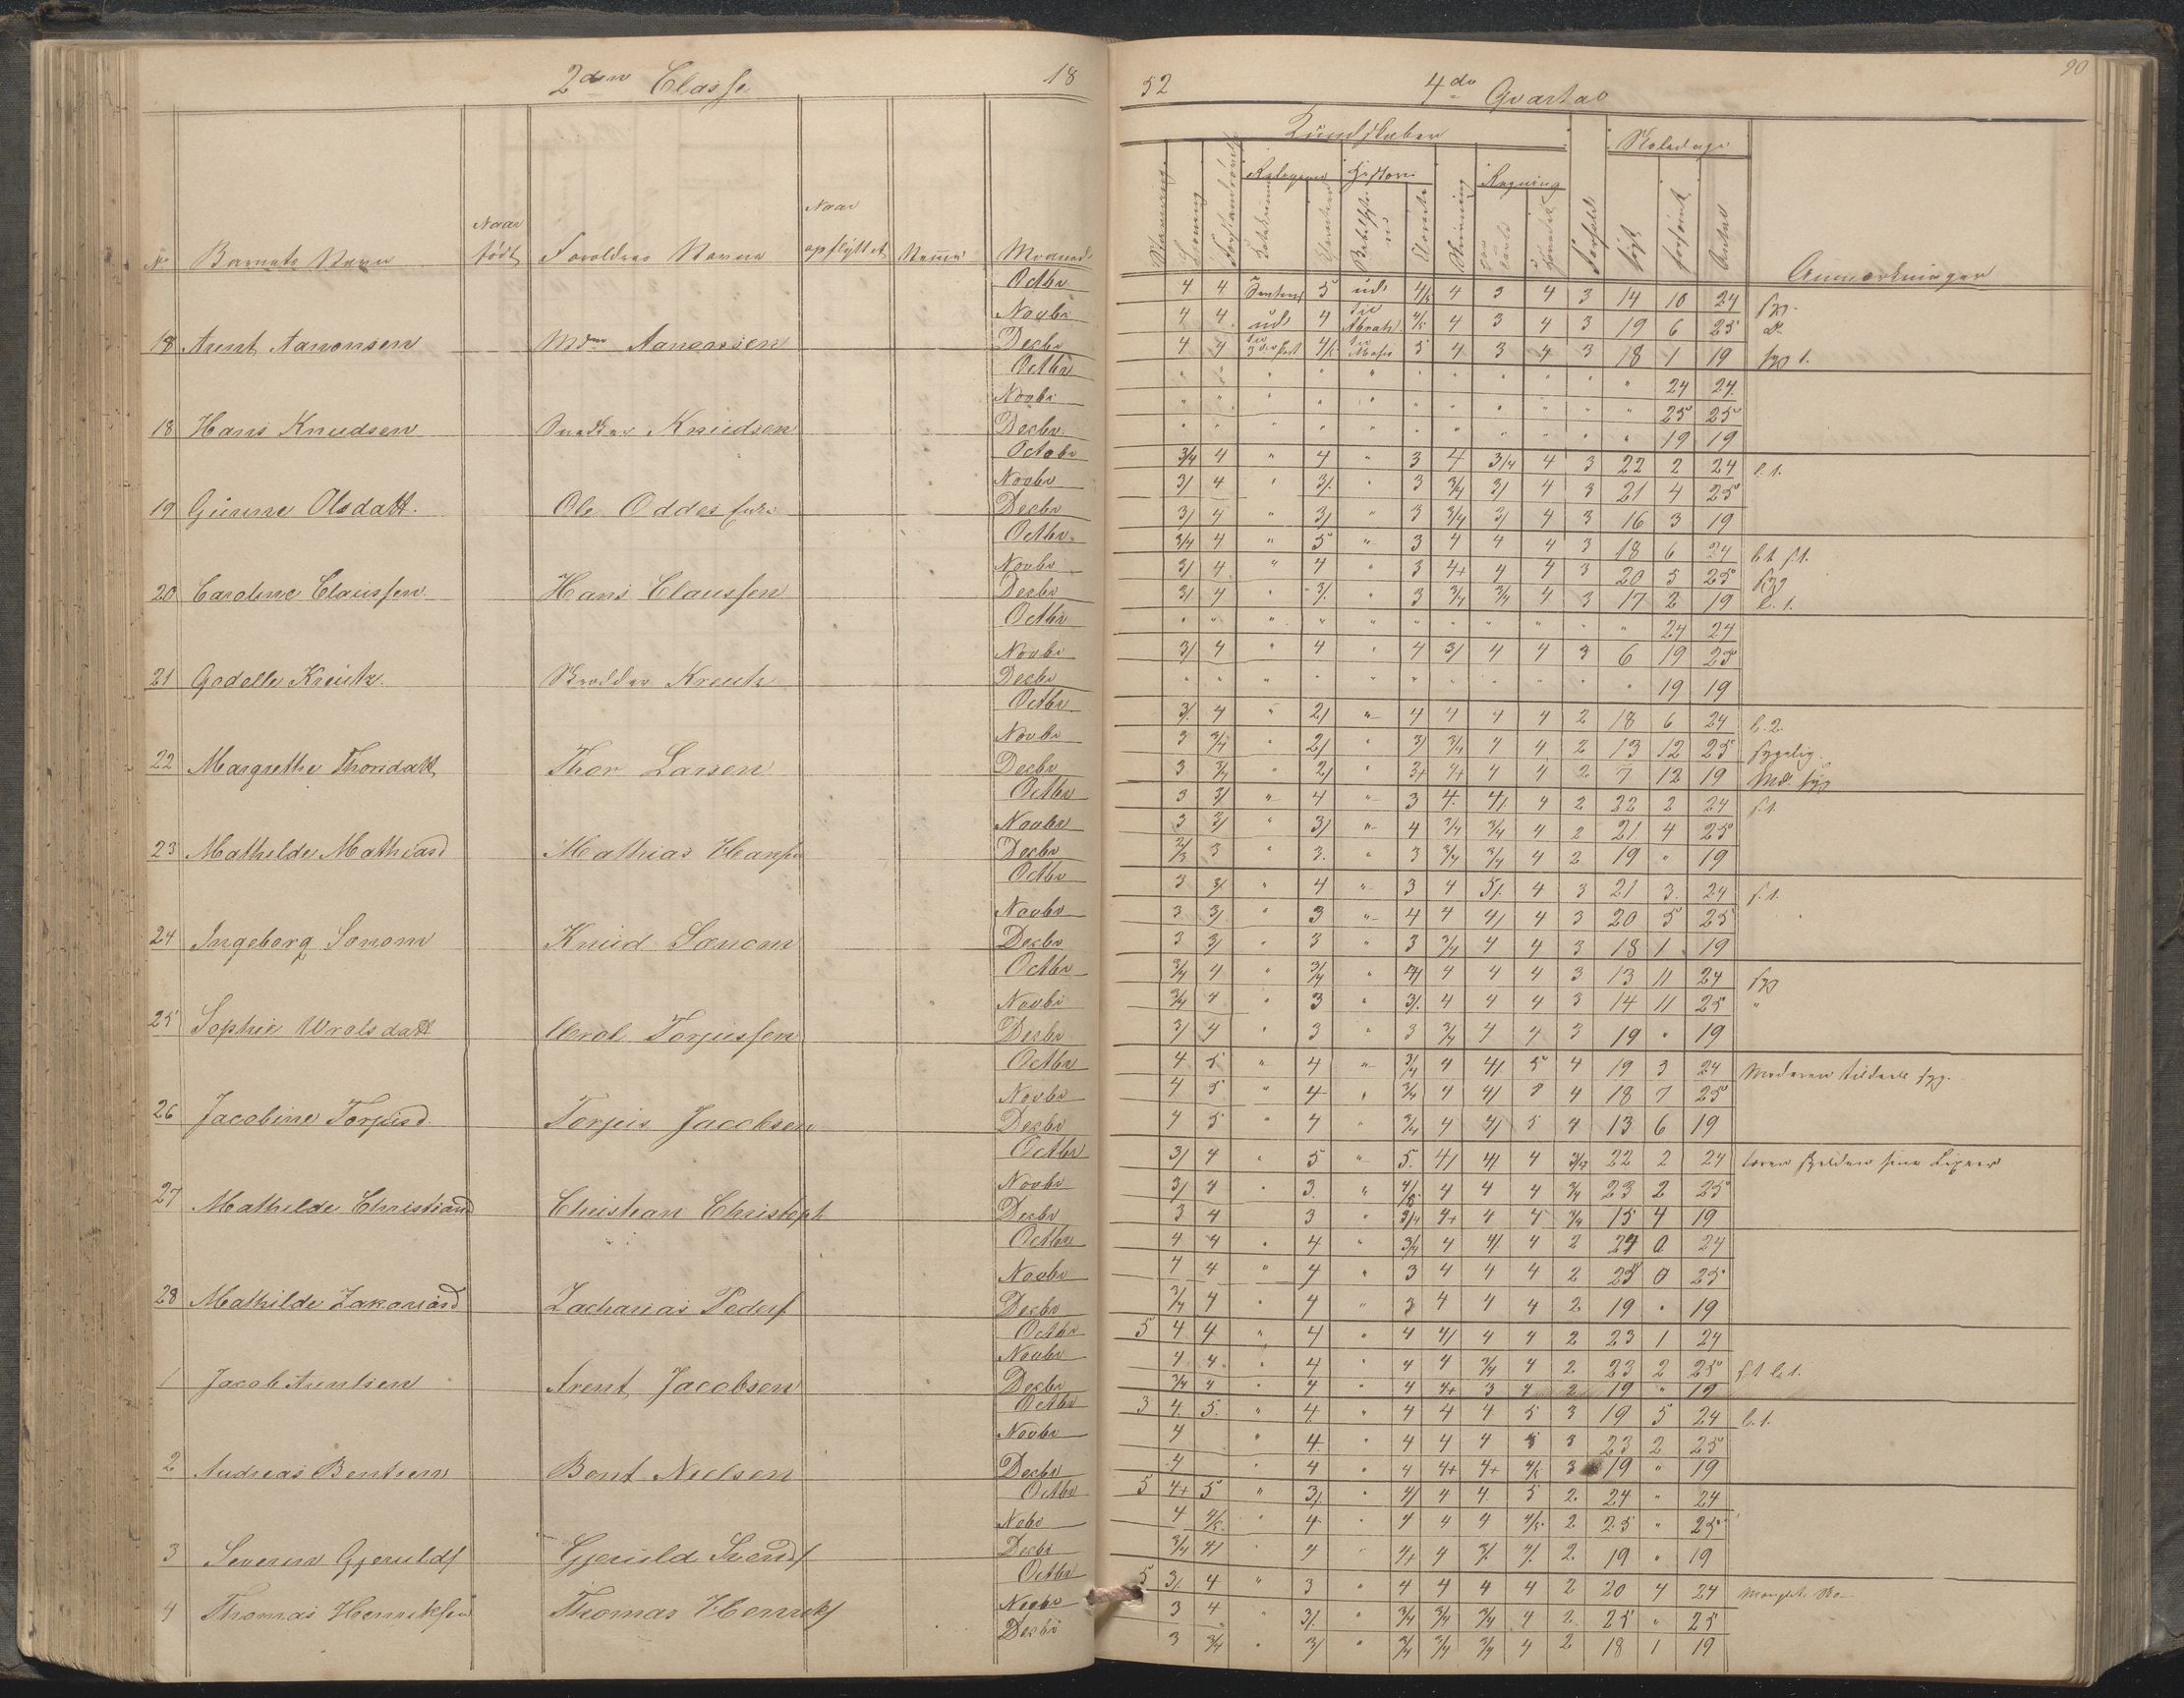 2den Classe 18
52 4de Qvartal 90
Kundskaber Skoledage
Religion Historie Regning
No Barnets Navn Naar født Forældres Navne Naar opflyttet Maaned Anmærkninger
Octbr 4 4 5 ude 4/5 4 3 4 3 14 10 24 syg.
Novbr 4 4 ude 4 til Abrah. 4/5 4 3 4 3 19 6 25 d.
18 Arent Aanonsen Mdm Aanonsen Decbr 4 4 4/5 til Moses 5 4 3 4 3 18 1 19 syg 1.
Octbr " " " " " " " " " " " 24 24
Novbr " " " " " " " " " " " 25 25
18 Hans Knudsen Knudsen Decbr " " " " " " " " " " " 19 19
Octobr 3/4 4 " 4 " 3 4 3/4 4 3 22 2 24 l.1.
Novbr 3/ 4 " 3/ " 3 3/4 3/ 4 3 21 4 25
19 Gunne Olsdatt. Ole Oddes Decbr 3/ 4 " 3/ " 3 3/4 3/ 4 3 16 3 19
Octbr 3/4 4 " 5 " 3 4 4 4 3 18 6 24 l.1 f.1.
Novbr 3/ 4 " 4 " 3 4+ 4 4 3 20 5 25 syg
20 Caroline Claussen Hans Claussen Decbr 3/ 4 " 3/ " 3 3/4 3/4 4 3 17 2 19 l.1.
Octbr " " " " " " " " " " " 24 24
Novbr 3/ 4 " 4 " 4 3/ 4 4 3 6 19 25
21 Godelle Kreutz Kreutz Decbr " " " " " " " " " " " 19 19
Octbr 3/ 4 " 2/ " 4 4 4 4 2 18 6 24 l.2.
Novbr 3 3/4 " 2/ " 3/ 3/4 4 4 2 13 12 25 sygelig.
22 Margrethe Thorsdatt Thor Larsen Decbr 3 3/4 " 2/ " 3+ 4+ 4 4 2 7 12 19 Md. syg
Octbr 3 3/ " 4 " 3 4. 4/ 4 2 22 2 24 f.1.
Novbr 3 3/ " 3/ " 4 3/4 3/4 4 2 21 4 25
23 Mathilde Mathiasd Mathias Hansen Decbr 2/3 3 " 3. " 3 3/4 3/4 4 2 19 " 19
Octbr 3 3/ " 4 " 3 4 5/ 4 3 21 3 24 f.1.
Novbr 3 3/ " 3 " 4 4 4/ 4 3 20 5 25
24 Ingeborg Knud Decbr 3 3/ " 3 " 3 3/4 4 4 3 18 1 19
Octbr 3/4 4 " 3/4 " 4 4 4 3 13 11 24 syg
Novbr 3/4 4 " 3 " 3/ 4 4 4 3 14 11 25 "
25 Sophie Wrolsdatt Wrol Torjussen Decbr 3/ 4 " 3 " 3 3/4 4 4 3 19 " 19
Octbr 4 5 " 4 " 3/4 4 4/ 5 4 19 3 24 Moderen tildeels syg.
Novbr 4 5 " 4 " 3/4 4 4/ 4 18 7 25
26 Jacobine Torjusd Torjus Jacobsen Decbr 4 5 " 4 " 3/4 4 4/ 5 4 13 6 19
Octbr 3/ 4 " 5 " 5. 4/ 4/ 4 3/4 22 2 24 lærer sjelden sine Lexier
Novbr 3/ 4 " 3. " 4/5 4 4 4 3/4 23 2 25
27 Mathilde Christiand Christian Christoph Decbr 3 4 3 " 3/4 4+ 4 4 3/4 15 4 19
Octbr 4 4 " 4 " 3/4 4 4/ 4 2 24 0 24
Novbr 4 4 " 4 " 3 4 4 4 2 25 0 25
28 Mathilde Zakariasd Zacharias Peders Decbr 3/4 4 " 4 " 3 4 4 4 2 19 " 19
Octbr 5 4 4 " 4 " 4 4/ 4 4 2 23 1 24
Novbr 4 4 " 4 " 4 4 3/4 4 2 23 2 25 f.1 l.1.
1 Jacob Arentsen Arent Jacobsen Decbr 3/4 4 " 4 " 4 4+ 3 4 2 19 " 19
Octbr 3 4 5 " 4 " 4 4 4 5 3 19 5 24 l.1.
Novbr 4 " 4 " 4 4 4 5 3 23 2 25
2 Andreas Bentsen Bent Nielsen Decbr 4 " 4 " 4 4+ 4+ 4/5 3 19 " 19
Octbr 5 4+ 5 " 3/ " 4/ 4 4 5 2 24 " 24
Nobr 4 4/5 " 4 " 4 4 4 4/5 2 25 " 25
3 Severin Gjerulds Gjeruld Svends Decbr 3/4 4/ " 4 " 4+ 4 3/ 4/ 2 19 " 19
Octbr 5 3/ 4 " 3 " 4 4 4 4 2 20 4 24
4 Thomas Henriksen Thomas Henriks Novbr 3 4 " 3/ " 3/4 3/4 3/4 4 2 25 " 25
Decbr 3 3/4 " 3/ " 3/4 3/4 3/4 4 2 18 1 19